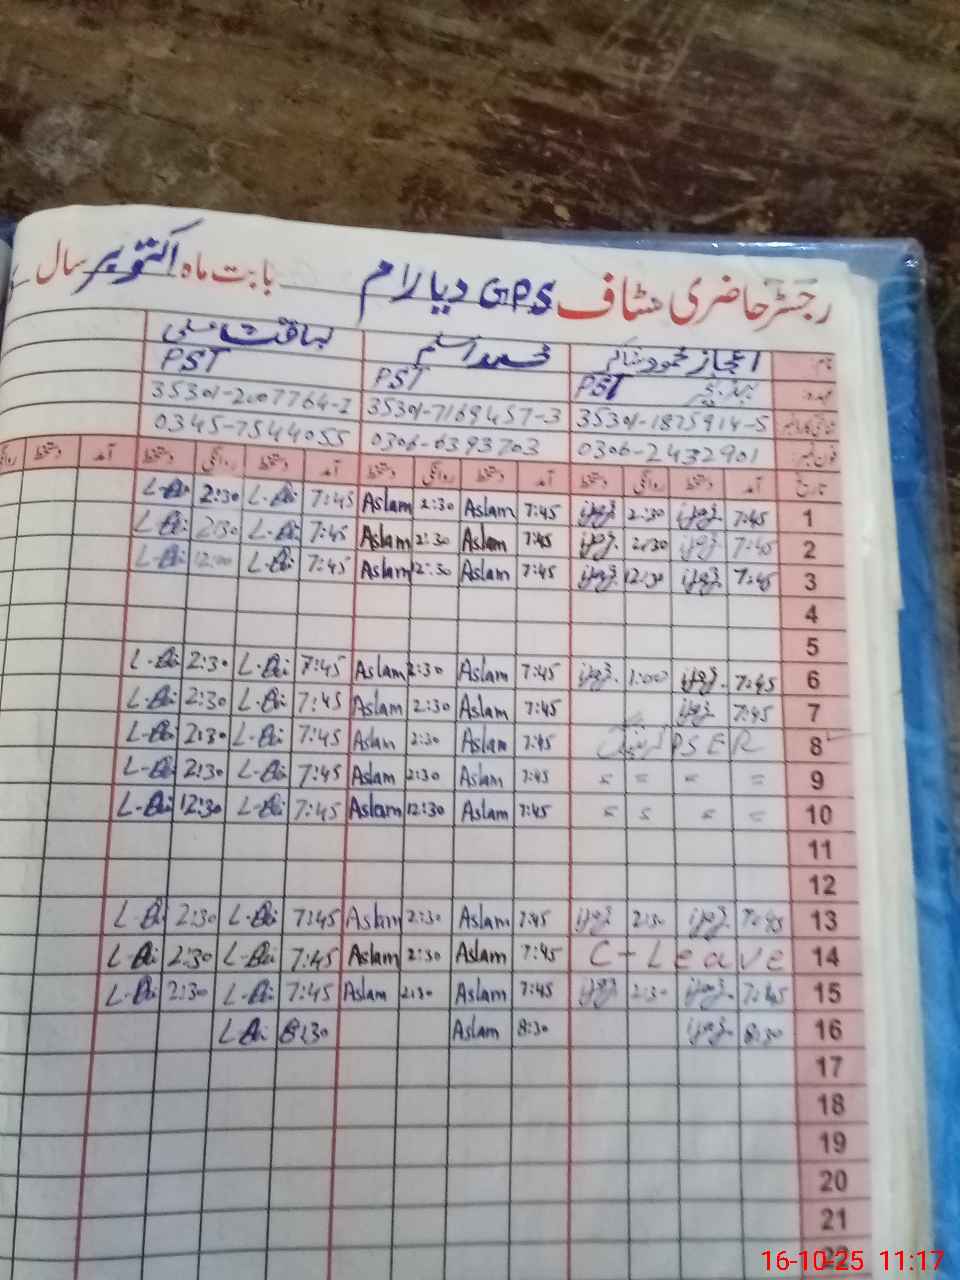 رجسٹر حاضری سٹاف GPS دیا رام بابت ماہ اکتوبر سال
نام اعجاز محمود شاکر محمد اسلم لیاقت علی
عہدہ PST PST PST
35301-1875914-5 35301-7169457-3 35301-2007764-1
فون نمبر 0306-2432901 0306-6393703 0345-7544055
تاریخ آمد دستخط روانگی دستخط آمد دستخط روانگی دستخط آمد دستخط روانگی دستخط آمد دستخط
1 7:45 اعجاز 2:30 اعجاز 7:45 Aslam 2:30 Aslam 7:45 L-Ali 2:30 L-Ali
2 7:45 اعجاز 2:30 اعجاز 7:45 Aslam 2:30 Aslam 7:45 L-Ali 2:30 L-Ali
3 7:45 اعجاز 12:30 اعجاز 7:45 Aslam 12:30 Aslam 7:45 L-Ali 12:00 L-Ali
4
5
6 7:45 اعجاز 1:00 اعجاز 7:45 Aslam 2:30 Aslam 7:45 L-Ali 2:30 L-Ali
7 7:45 اعجاز 7:45 Aslam 2:30 Aslam 7:45 L-Ali 2:30 L-Ali
8 PSER ٹریننگ 7:45 Aslam 2:30 Aslam 7:45 L-Ali 2:30 L-Ali
9 = = = = 7:45 Aslam 2:30 Aslam 7:45 L-Ali 2:30 L-Ali
10 = = = = 7:45 Aslam 12:30 Aslam 7:45 L-Ali 12:30 L-Ali
11
12
13 7:45 اعجاز 2:30 اعجاز 7:45 Aslam 2:30 Aslam 7:45 L-Ali 2:30 L-Ali
14 C-Leave 7:45 Aslam 2:30 Aslam 7:45 L-Ali 2:30 L-Ali
15 7:45 اعجاز 2:30 اعجاز 7:45 Aslam 2:30 Aslam 7:45 L-Ali 2:30 L-Ali
16 8:30 اعجاز 8:30 Aslam 8:30 L-Ali
17
18
19
20
21
22
16-10-25 11:17